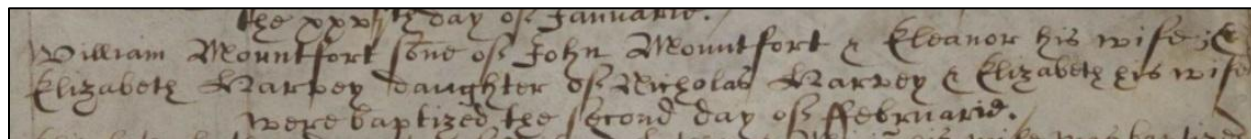 the xxxth day of Januarie.
William Mountfort sone of John Mountfort & Eleanor his wife; &
Elizabeth Harvey daughter of Nicholas Harvey & Elizabeth his wife
were baptized the second day of ffebruarie.